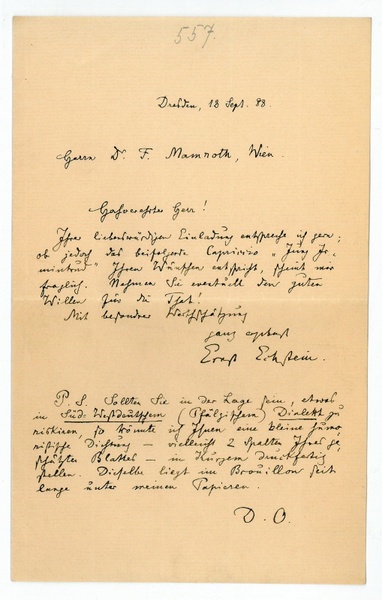 557.
Dresden, 13 Sept. 88.
Herrn Dr F. Mamroth, Wien.
Hochverehrter Herr!
Ihrer liebenswürdigen Einladung entspreche ich gern;
ob jedoch das beifolgende Capriccio „
" Ihren Wünschen entspricht, scheint mir
fraglich. Nehmen Sie eventuell den guten
Willen für die That!
Mit besondrer Werthschätzung
ganz ergebenst
Ernst Eckstein.
P. S. Sollten Sie in der Lage sein, etwas
in Süd-Westdeutschem (Pfälzischem) Dialekt zu
riskiren, so könnte ich Ihnen eine kleine humo-
ristische Dichtung – vielleicht 2 Spalten Ihres ge-
schätzten Blattes – in Kurzem druckfertig
stellen. Dieselbe liegt im Brouillon seit
lange unter meinen Papieren.
D. O.